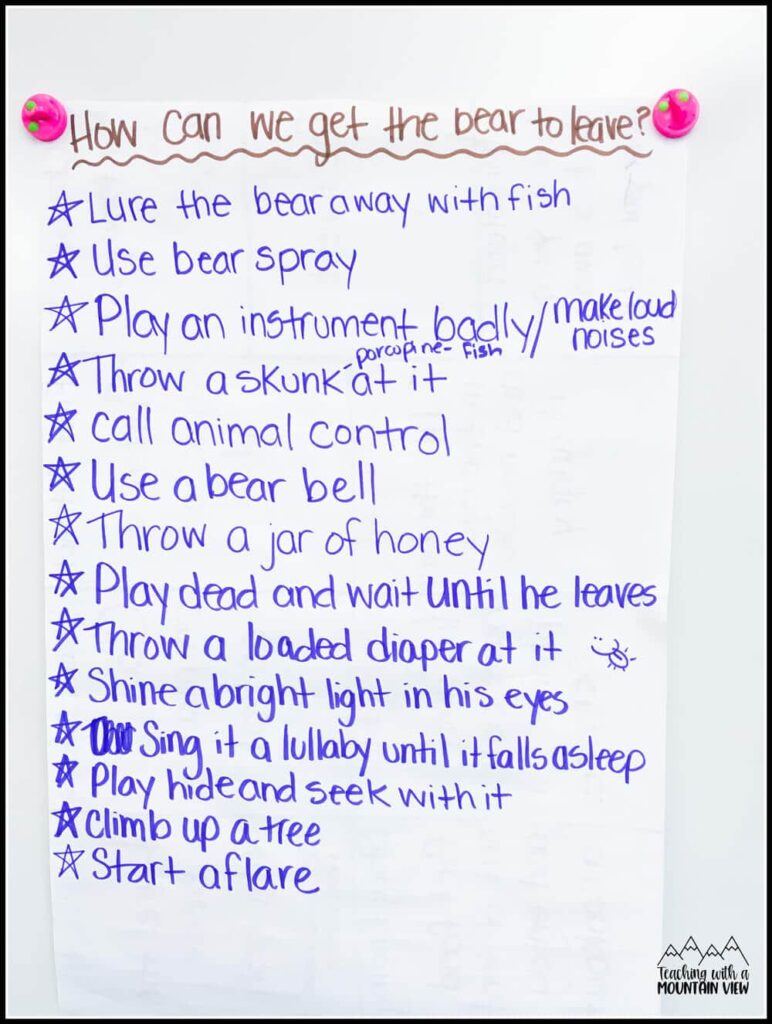 How can we get the bear to leave?
☆ Lure the bear away with fish
☆ Use bear spray
☆ Play an instrument badly/make loud noises
-porcupine- fish
☆ Throw a skunk at it
☆ Call animal control
☆ Use a bear bell
☆ Throw a jar of honey
☆ Play dead and wait until he leaves
☆ Throw a loaded diaper at it
☆ Shine a bright light in his eyes
☆ Sing it a lullaby until it falls asleep
☆ Play hide and seek with it
☆ Climb up a tree
☆ Start a flare
Teaching with a
MOUNTAIN VIEW